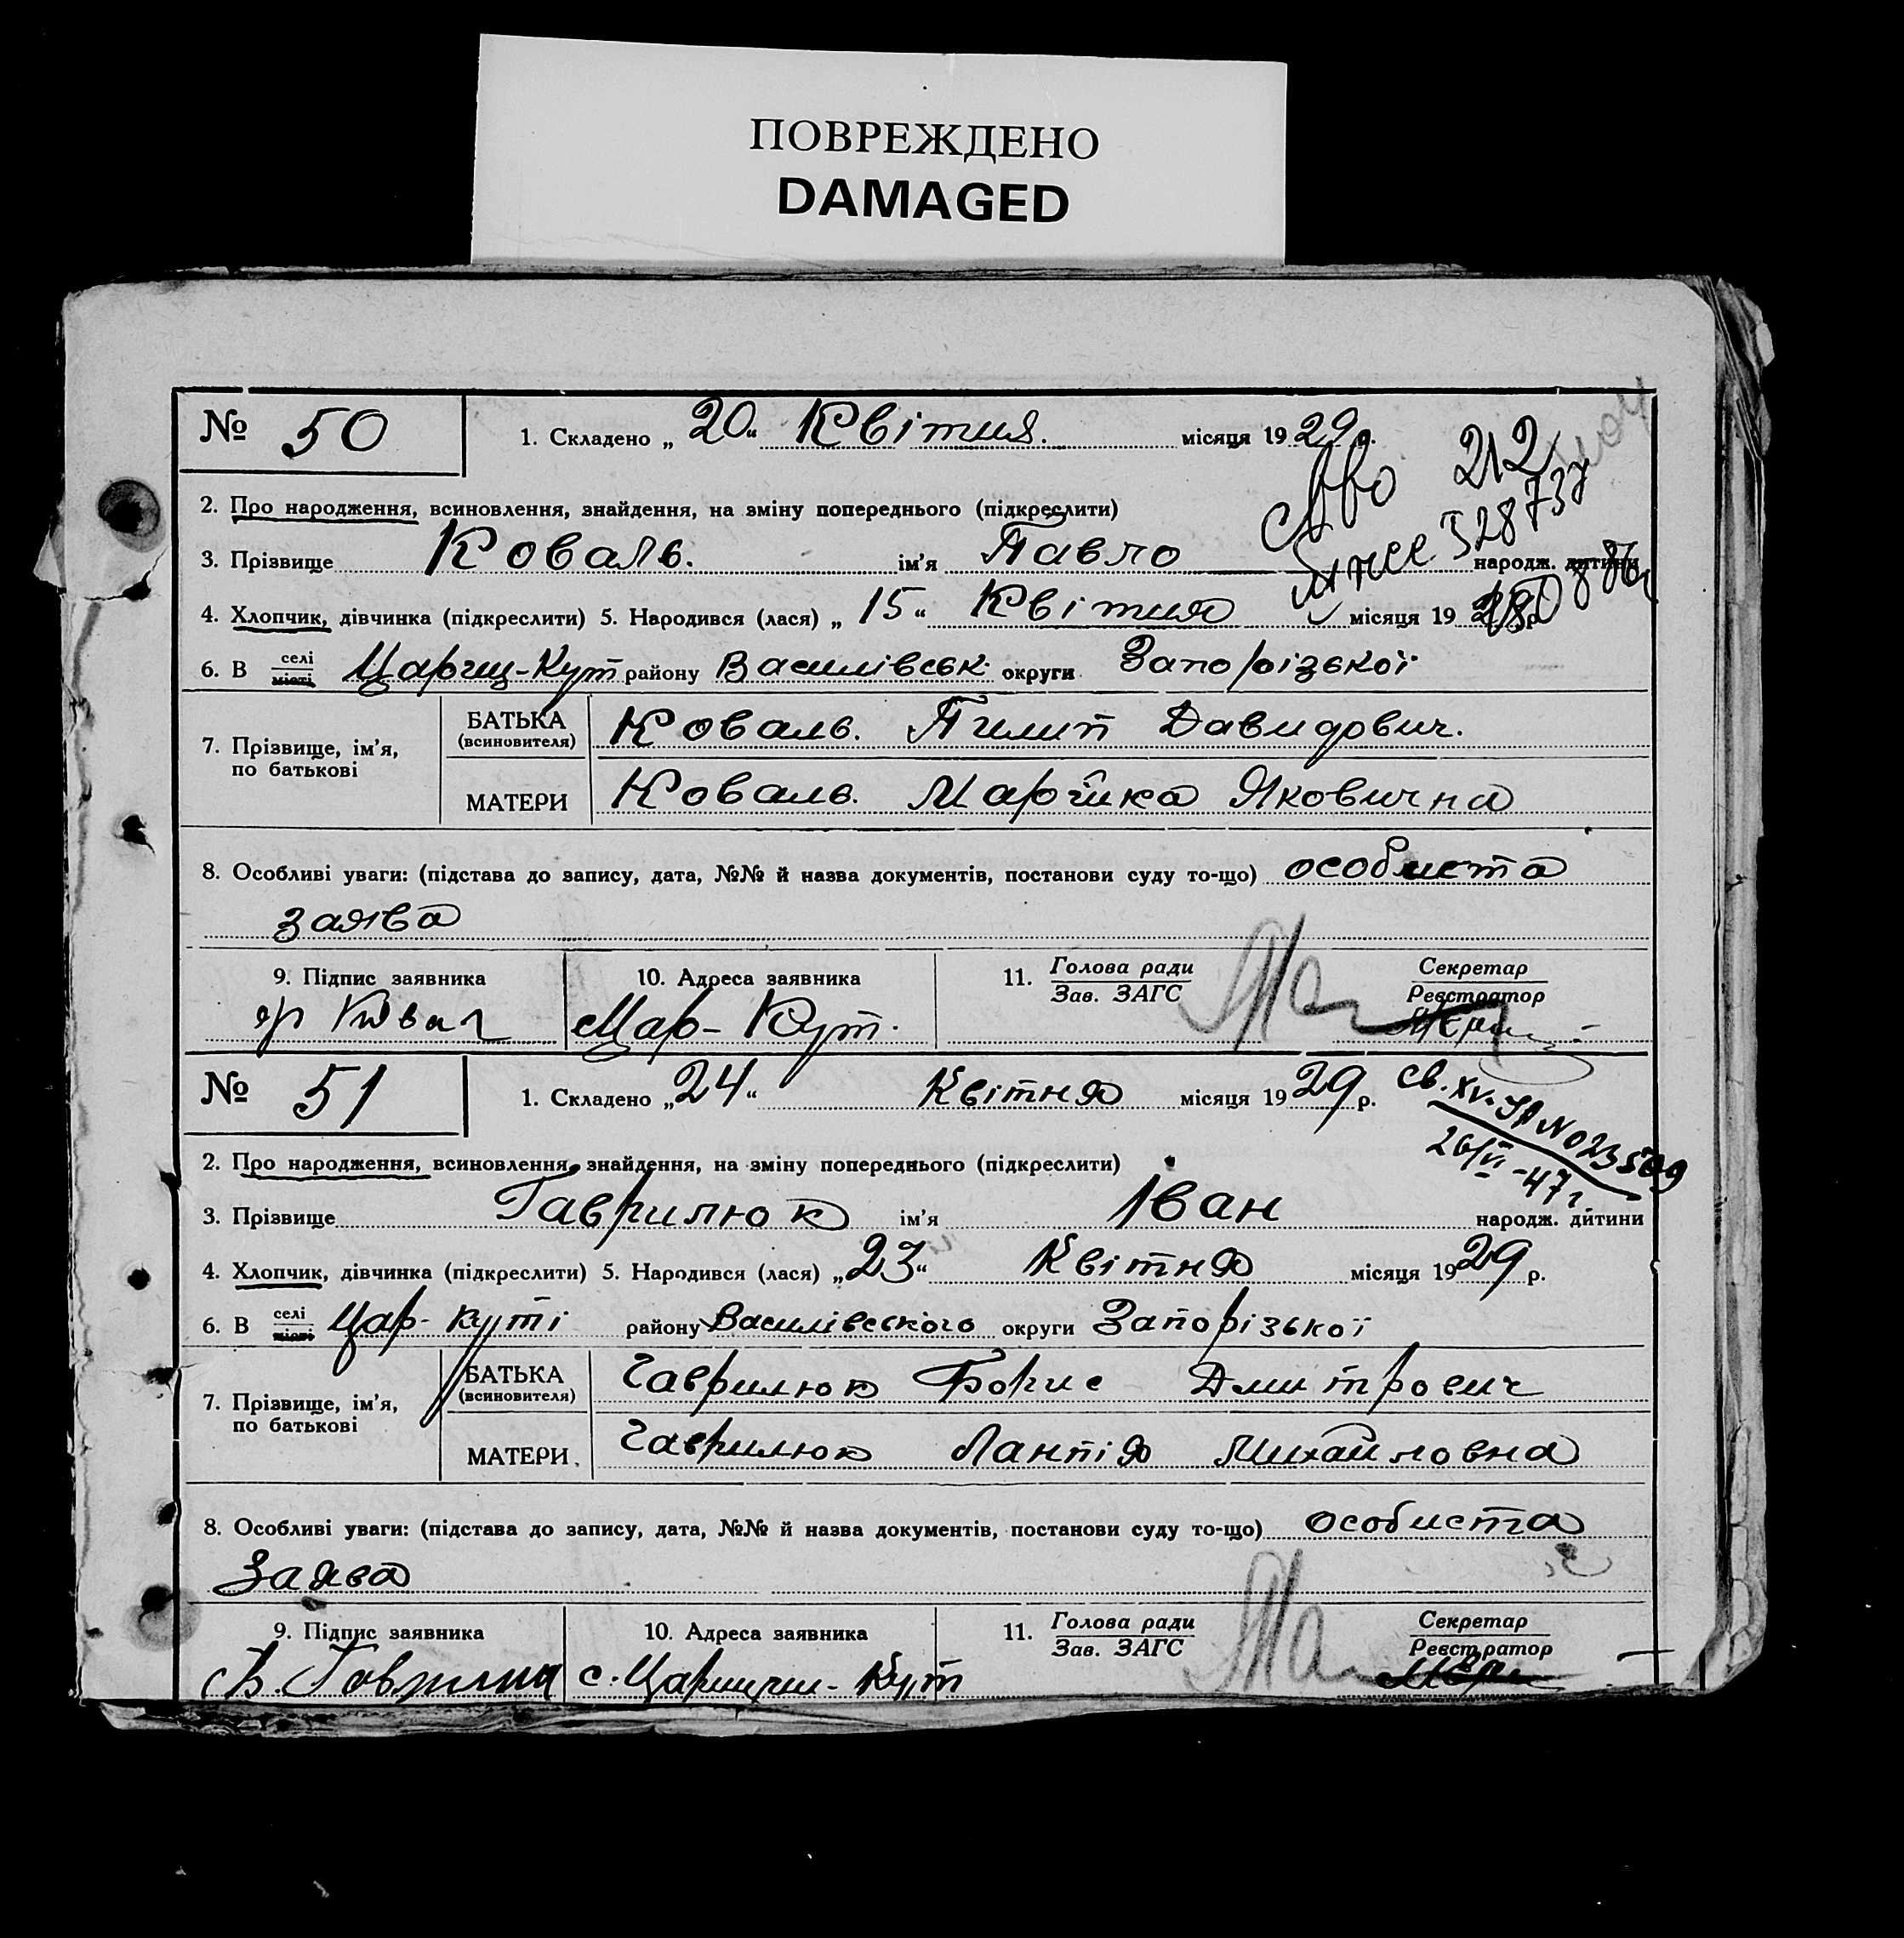 ПОВРЕЖДЕНО
DAMAGED
№ 50 1. Складено „ 20 “ Квітня. місяця 1929 р.
212
2. Про народження, всиновлення, знайдення, на зміну попереднього (підкреслити)
328737
3. Прізвище Коваль. ім’я Павло народж. дитини
4. Хлопчик, дівчинка (підкреслити) 5. Народився (лася) „ 15 “ Квітня місяця 19 р.
6. В селі місті Царициц-Кут району Василівськ. округи Запорізької
7. Прізвище, ім’я, по батькові
БАТЬКА (всиновителя) Коваль. Пилип Давидович.
МАТЕРИ Коваль. Марійка Яковична
8. Особливі уваги: (підстава до запису, дата, №№ й назва документів, постанови суду то-що) особиста
заява
9. Підпис заявника 10. Адреса заявника 11. Голова ради Зав. ЗАГС Секретар Реєстратор
Цар-Кут.
№ 51 1. Складено „ 24 “ Квітня місяця 1929 р.
св. XV-ЯА № 023509
26/VI-47 г.
2. Про народження, всиновлення, знайдення, на зміну попереднього (підкреслити)
3. Прізвище Гаврилюк ім’я Іван народж. дитини
4. Хлопчик, дівчинка (підкреслити) 5. Народився (лася) „ 23 “ Квітня місяця 1929 р.
6. В селі місті Цар-куті району Василівського округи Запорізької
7. Прізвище, ім’я, по батькові
БАТЬКА (всиновителя) Гаврилюк Борис Дмитрович
МАТЕРИ Гаврилюк Лантія Михайловна
8. Особливі уваги: (підстава до запису, дата, №№ й назва документів, постанови суду то-що) особиста
Заява
9. Підпис заявника 10. Адреса заявника 11. Голова ради Зав. ЗАГС Секретар Реєстратор
с. Царицин-Кут